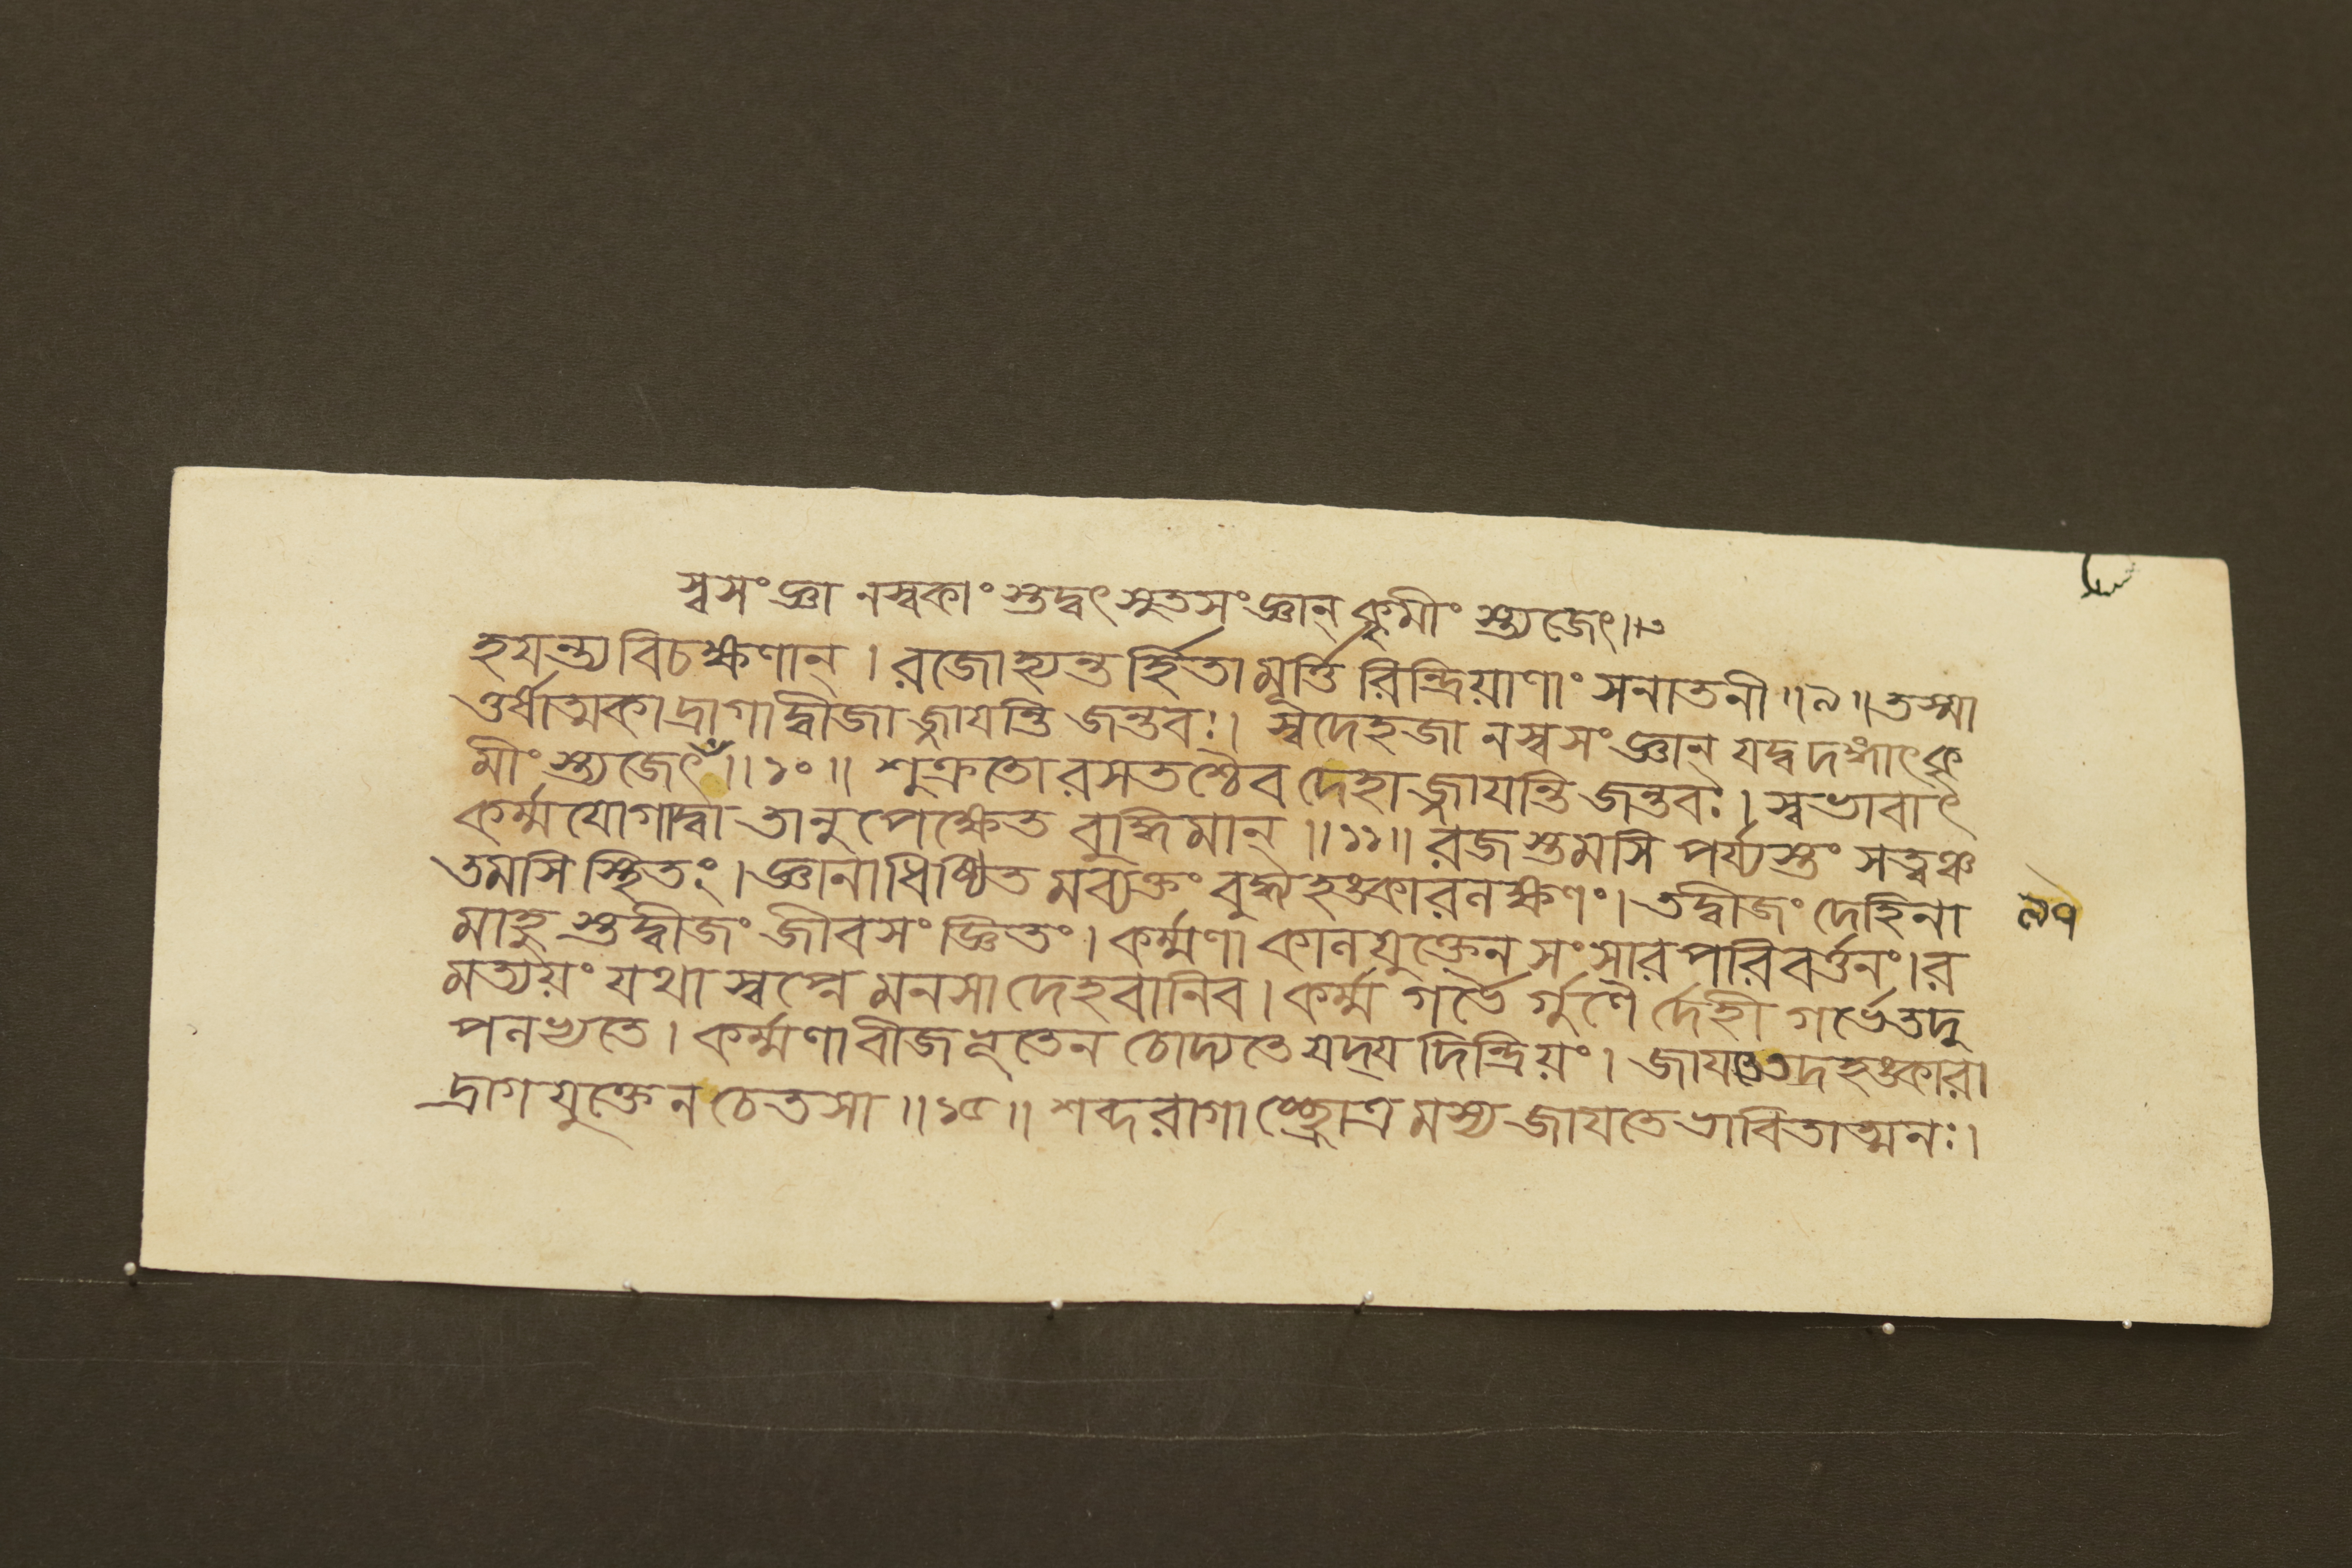 স্বসংজ্ঞানস্বকাংস্তদ্বৎসুতসংজ্ঞান্ কৃমীংস্ত্যজেৎ॥৩
হযন্ত্যবিচক্ষণান্ । রজোহ্যন্তর্হিতামূর্ত্তিরিন্দ্রিয়াণাং সনাতনী॥৯॥তস্মা
ওর্ষাত্মকাদ্রাগাদ্বীজাজ্জাযন্তি জন্তবঃ। স্বদেহজানস্বসংজ্ঞান্ যদ্বদঙ্গাৎকৃ
মীংস্ত্যজেৎ॥১০॥ শুক্রতোরসতশ্চৈব দেহাজ্জাযন্তি জন্তবঃ। স্বভাবাৎ
কর্ম্মযোগাদ্বা তানুপেক্ষেত বুদ্ধিমান্॥১১॥ রজস্তমসি পর্য্যস্তং সত্ত্বঞ্চ
তমসি স্থিতং। জ্ঞানাধিষ্ঠিতমব্যক্তং বুদ্ধ্যহঙ্কারলক্ষণং। তদ্বীজং দেহিনা
মাহুস্তদ্বীজং জীবসংজ্ঞিতং। কর্ম্মণা কালযুক্তেন সংসারপরিবর্ত্তনং। র
মত্যয়ং যথা স্বপ্নে মনসা দেহবানিব। কর্ম্মগর্ভৈর্গুণৈর্দেহী গর্ভেতদু
পলভ্যতে। কর্ম্মণা বীজভূতেন চোদ্যতে যদ্যদিন্দ্রিয়ং। জাযতেতদহঙ্কারা
দ্রাগযুক্তেন চেতসা॥১৫॥ শব্দরাগাচ্ছ্রোত্রমস্য জাযতে ভাবিতাত্মনঃ।
৯৭